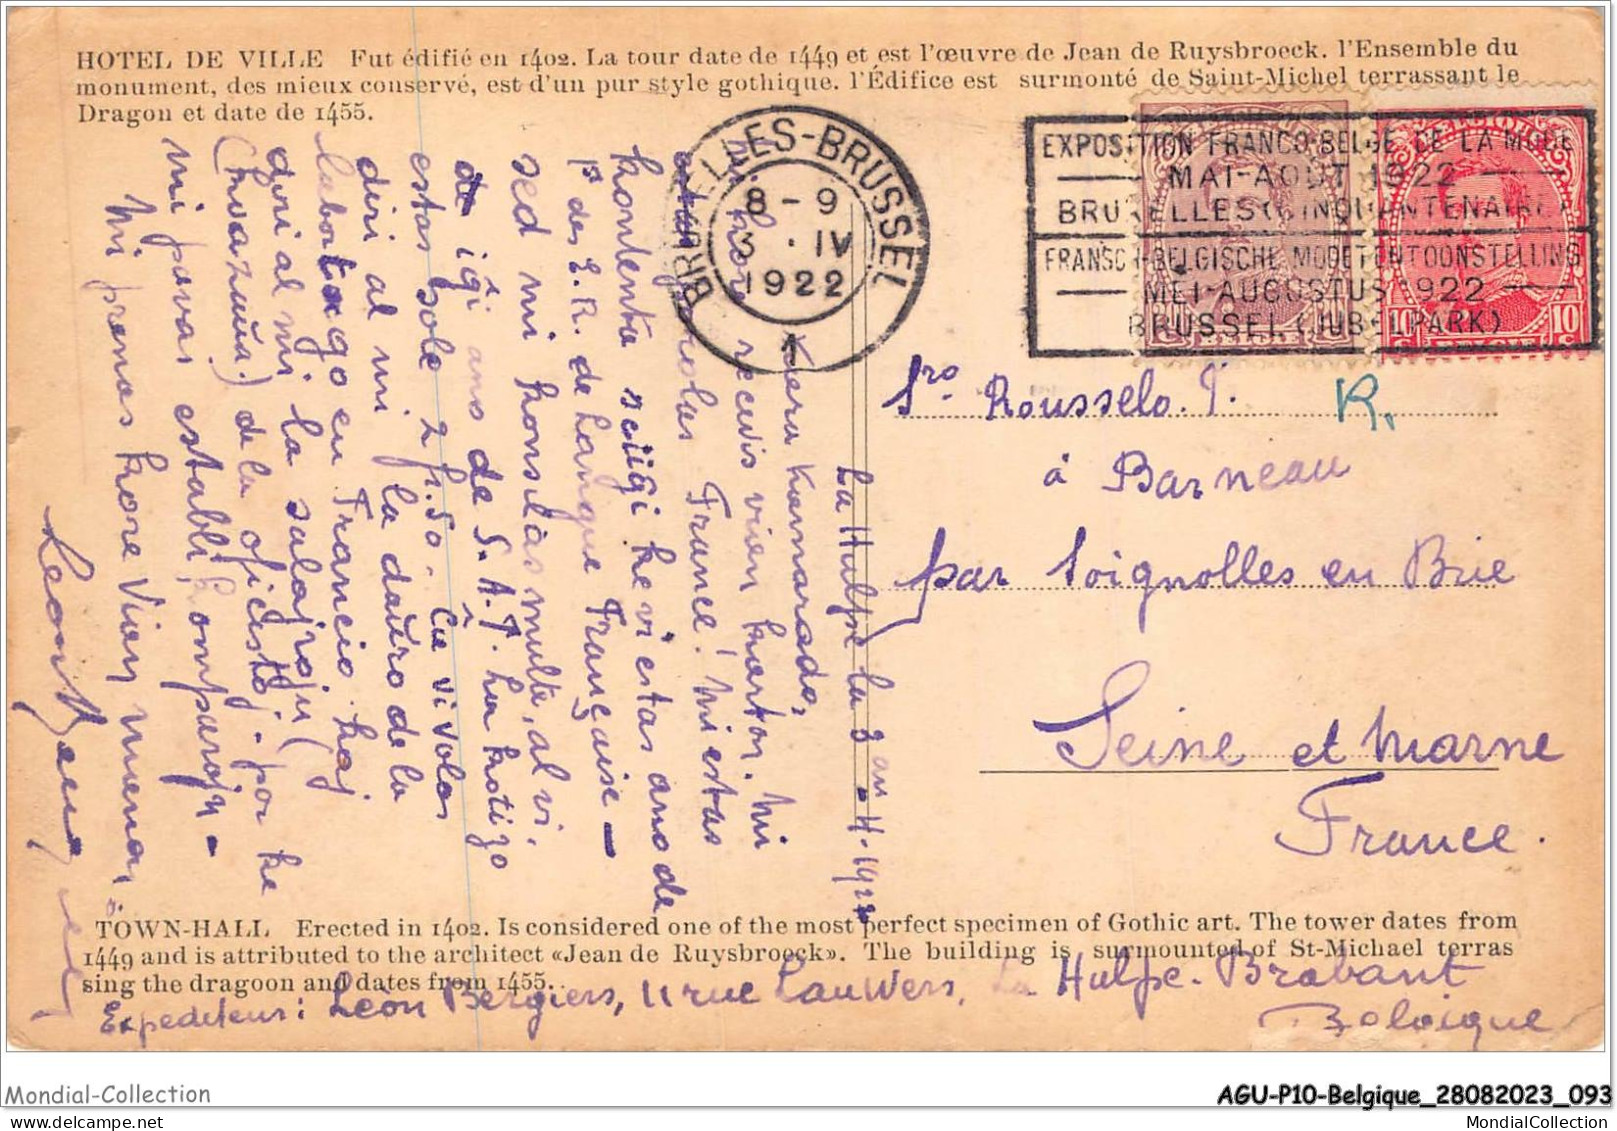 HOTEL DE VILLE Fut édifié en 1402. La tour date de 1449 et est l'œuvre de Jean de Ruysbroeck. l'Ensemble du
monument, des mieux conservé, est d'un pur style gothique. l'Édifice est surmonté de Saint-Michel terrassant le
Dragon et date de 1455.
BRUXELLES-BRUSSEL
8-9
3 . IV
1922
1
EXPOSITION FRANCO-BELGE DE LA MODE
MAI-AOUT 1922
BRUXELLES (CINQUANTENAIRE
FRANSCH-BELGISCHE MODETENTOONSTELLING
MEI-AUGUSTUS 1922
BRUSSEL (JUBELPARK)
BELGIQUE
10 C 10 C
BELGIE
BELGIE
Sro Rousselo. J.
R.
à Barneau
par Soignolles en Brie
Seine et Marne
France.
La Hulpe la 3 an-4-1922
Kiera Kamarado,
mi hove recevis vien karton. Mi
France! Mi estas
kontenta ke vi estas ano de
1a des E.R. de Langue Française —
sed mi konsilas multe, al vi,
igi ano de S.A.T. la kotizo
estas sole 2 fr.50. Cu vi volas
diri al mi la daŭro de la
labortago en Francio, kaj
diri al mi. la salajroju (
de la oficisto. por ke
mi povas establi komparoju —
Mi premas kore Vian manon
TOWN-HALL Erected in 1402. Is considered one of the most perfect specimen of Gothic art. The tower dates from
1449 and is attributed to the architect «Jean de Ruysbroeck». The building is surmounted of St-Michael terras
sing the dragoon and dates from 1455.
Expediteur: Léon Bergiers, 11 rue Lauwers, La Hulpe - Brabant
Belgique
Mondial-Collection
AGU-P10-Belgique_28082023_093
MondialCollection